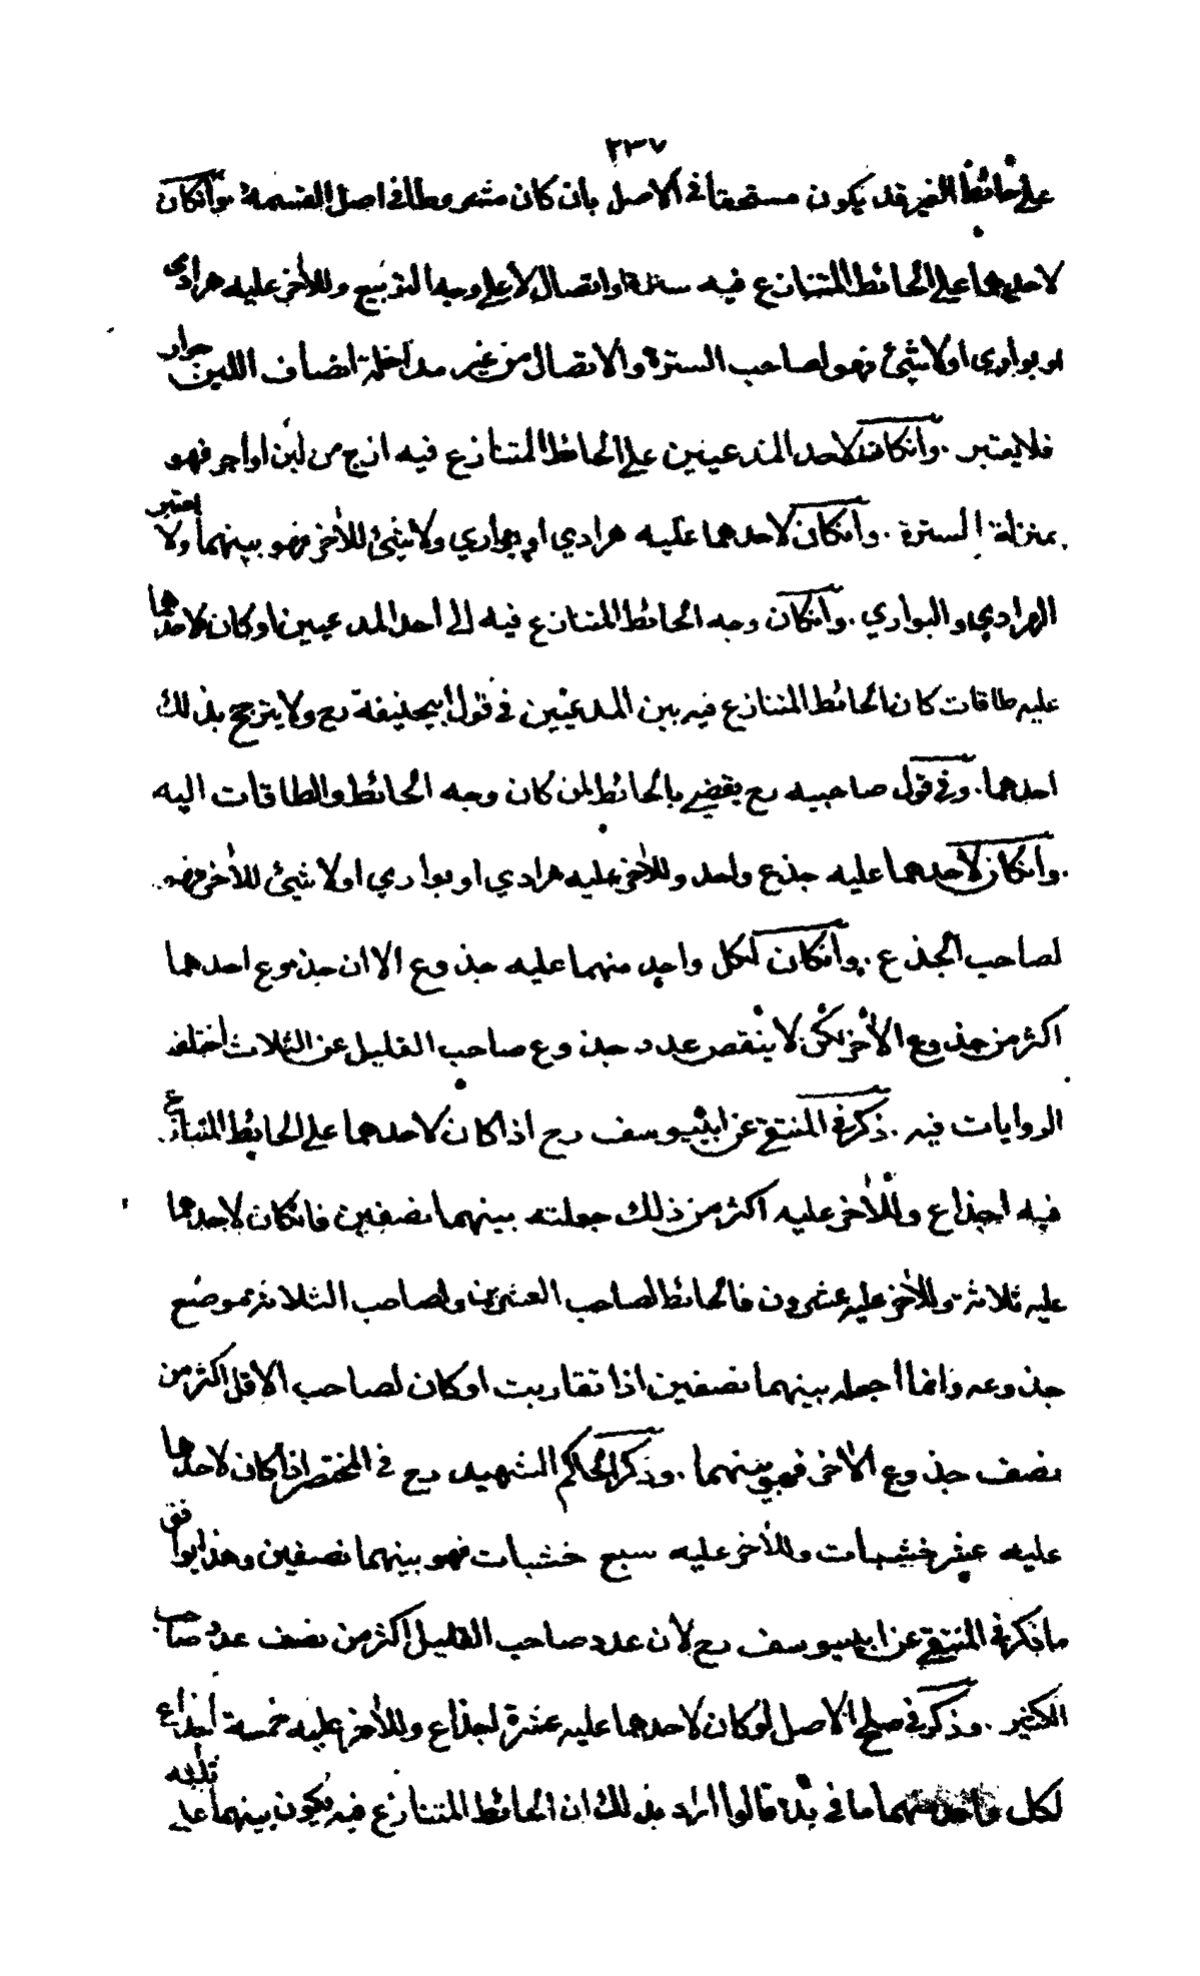 ٢٣٧
على حائط الغير قد يكون مستحقا في الاصل بان كان مشروطا في اصل القسمة وانكان
لاحدهما على الحائط المتنازع فيه سترة او اتصال لا على وجه التربيع وللآخر عليه هرادى
او بواري اولا شيئ فهو لصاحب السترة والاتصال من غير مداخلة انضاف اللبن جوار
فلا يعتبر . وانكانت لاحد المدعيين على الحائط المتنازع فيه ازج من لبن او اجر فهو
بمنزلة السترة . وانكان لاحدهما عليه هرادي او بواري ولا شيئ للآخر فهو بينهما ولا اعتبر
الهرادي والبواري . وانكان وجه الحائط المتنازع فيه الى احد المدعيين او كان لاحدهما
عليه طاقات كان الحائط المتنازع فيه بين المدعيين في قول ابيحنيفة رح ولا يترجح بذلك
احدهما . وفي قول صاحبيه رح يقضى بالحائط لمن كان وجه الحائط والطاقات اليه
. وانكان لاحدهما عليه جذع واحد وللآخر عليه هرادي او بواري اولا شيئ للآخر فهو
لصاحب الجذع . وانكان لكل واحد منهما عليه جذوع الا ان جذوع احدهما
اكثر من جذوع الآخر لكن لا ينقص عدد جذوع صاحب القليل عن الثلاث اختلف
الروايات فيه . ذكر في المنتقى عن ابييوسف رح اذا كان لاحدهما على الحائط المتنازع
فيه اجذاع وللآخر عليه اكثر من ذلك جعلته بينهما نصفين فانكان لاحدهما
عليه ثلاثة وللآخر عليه عشرون فالحائط لصاحب العشرين ولصاحب الثلاثة موضع
جذوعه وانما اجعله بينهما نصفين اذا تقاربت او كان لصاحب الاقل اكثر من
نصف جذوع الآخر فهو بينهما . وذكر الحاكم الشهيد رح في المختصر اذا كان لاحدهما
عليه عشر خشبات وللآخر عليه سبع خشبات فهو بينهما نصفين وهذا يوافق
ما ذكر في المنتقى عن ابييوسف رح لان عدد صاحب القليل اكثر من نصف عدد صاحب
الكثير . وذكر في صلح الاصل لو كان لاحدهما عليه عشرة اجذاع وللآخر عليه خمسة اجذاع
لكل واحد منهما ما في يده قالوا اراد بذلك ان الحائط المتنازع فيه يكون بينهما على ثلثه